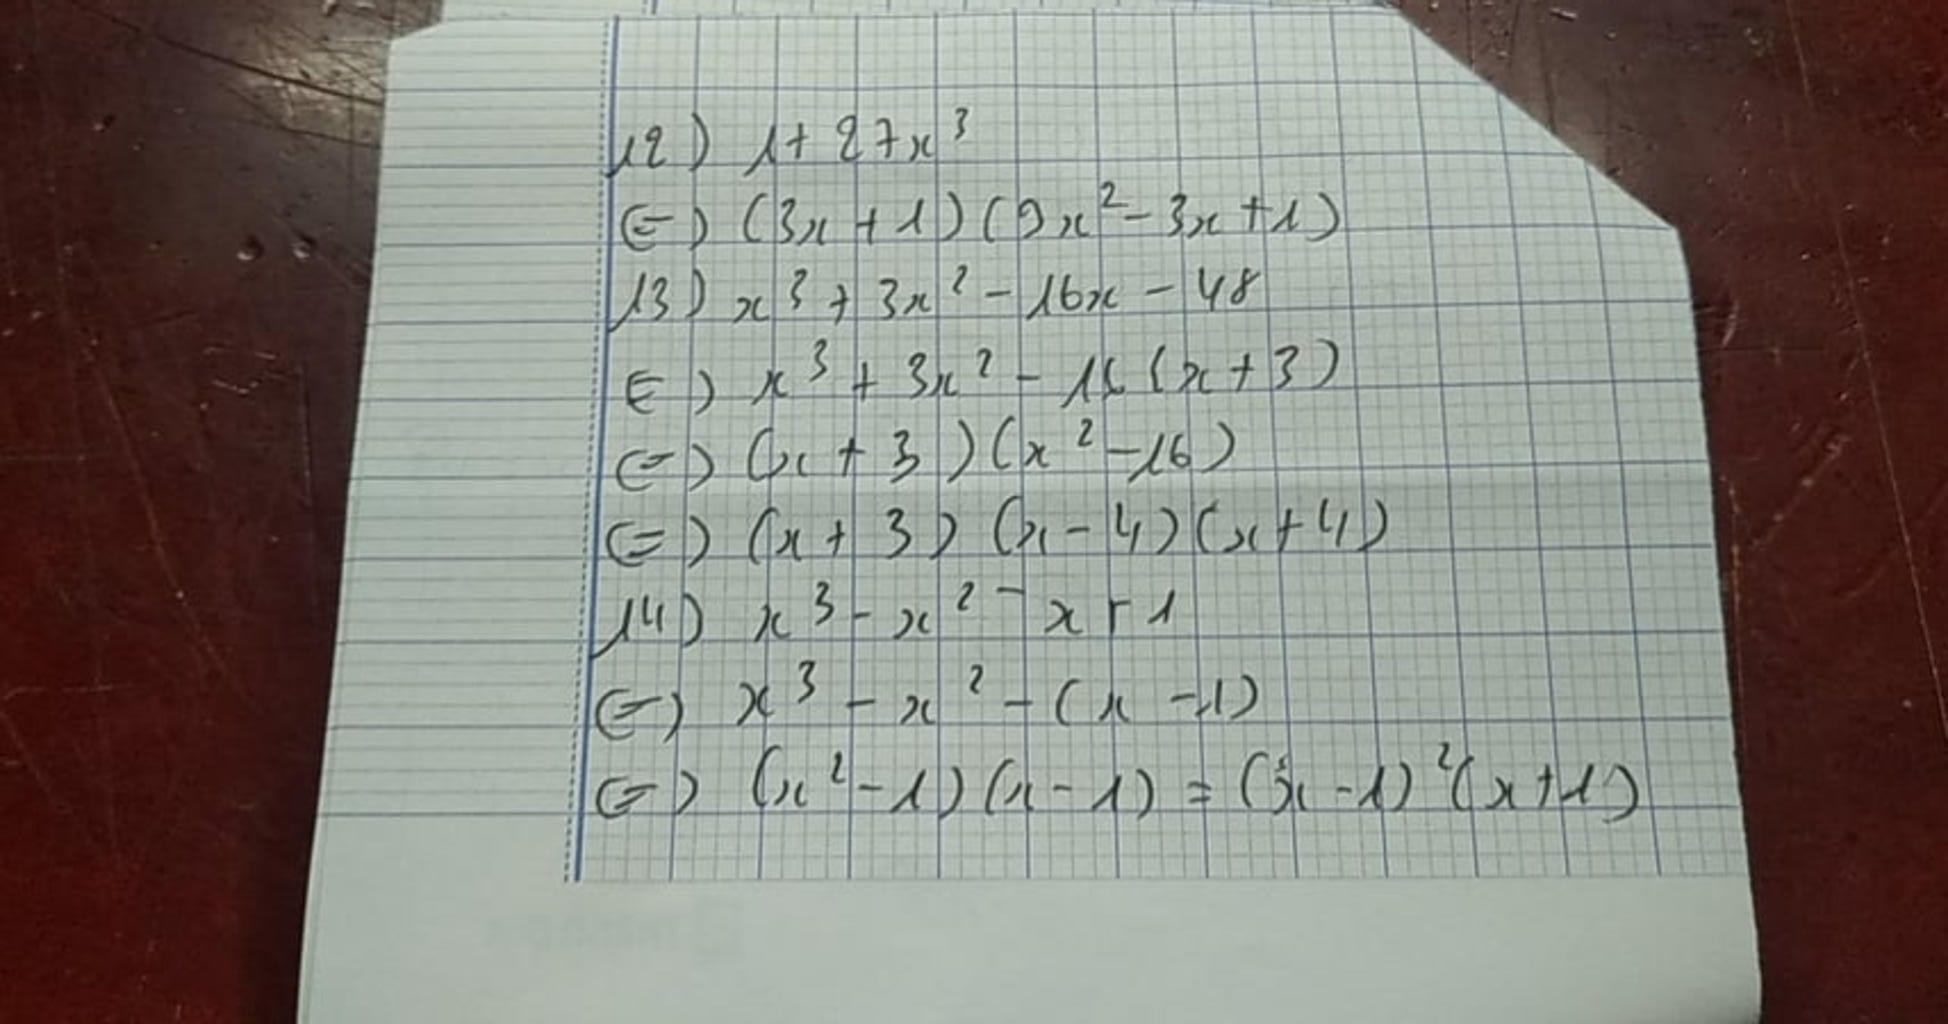 12) 1 + 27x³
⇔ (3x + 1)(9x² - 3x + 1)
13) x³ + 3x² - 16x - 48
⇔ x³ + 3x² - 16(x + 3)
⇔ (x + 3)(x² - 16)
⇔ (x + 3)(x - 4)(x + 4)
14) x³ - x² - x + 1
⇔ x³ - x² - (x - 1)
⇔ (x² - 1)(x - 1) = (x - 1)²(x + 1)